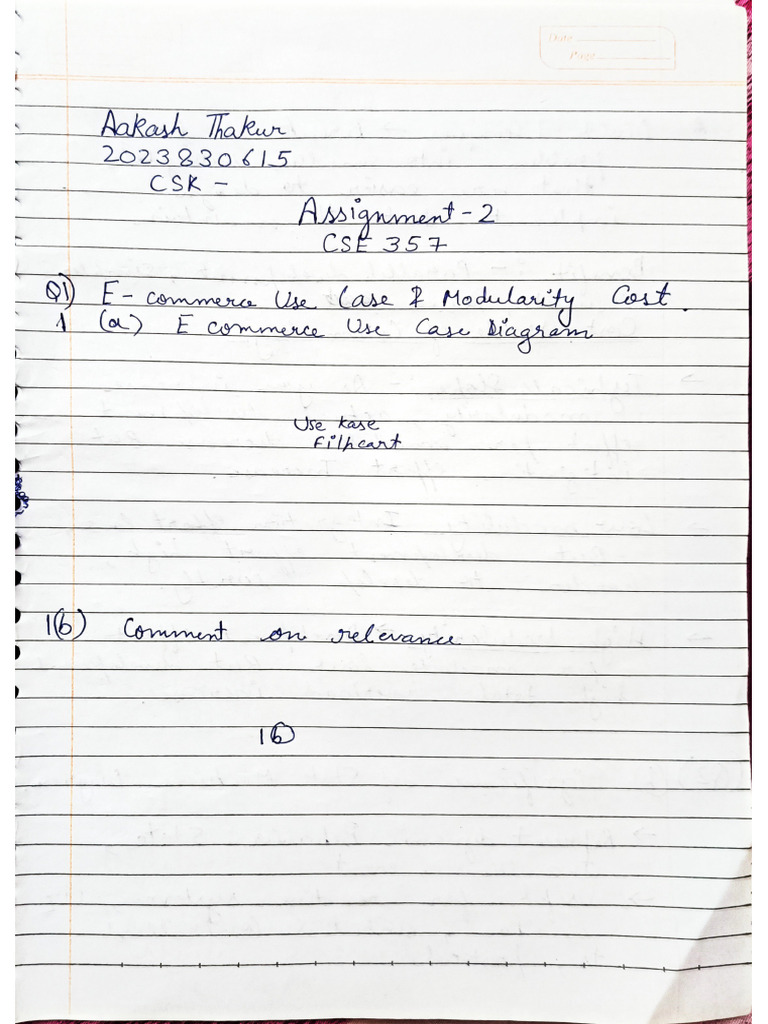 Date
Page
Aakash Thakur
2023830615
CSK -
Assignment - 2
CSE 357
Q1) E-commerce Use Case & Modularity Cost.
1 (a) E commerce Use Case Diagram
Use kase
Filpcart
1(b) Comment on relevance
1(b)